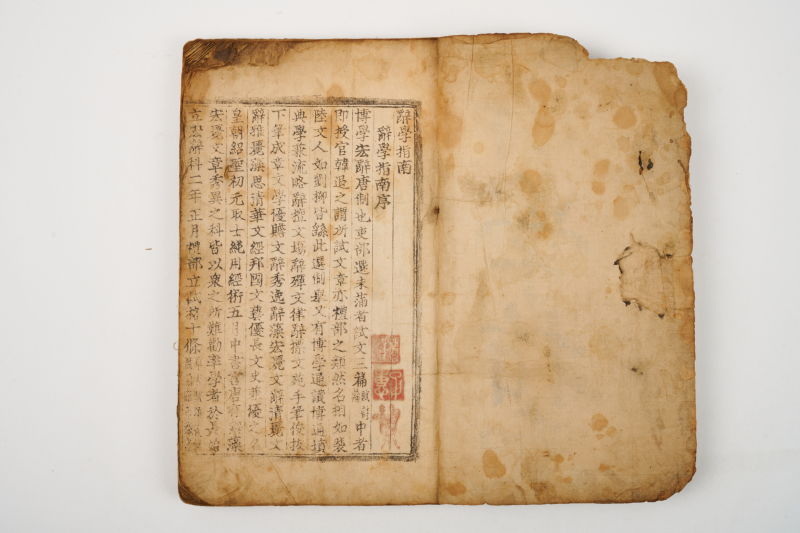 辭學指南
辭學指南序
博學宏辭唐制也吏部選未滿者試文三篇中者
即授官韓退之謂所試文章亦禮部之類然名相如裴
陸文人如劉柳皆繇此選制擧又有博學通議博通墳
典學兼流略辭擅文場辭殫文律辭摽文苑手筆俊拔
下筆成章文學優贍文辭秀逸辭藻宏麗文辭清麗文
辭雅麗藻思清華文經邦國文藝優長文史兼優之名
皇朝紹聖初元取士純用經術五月中書言唐有辭藻
宏麗文章秀異之科皆以衆之所難勸率學者於是始
立宏辭科二年正月禮部立試格十條